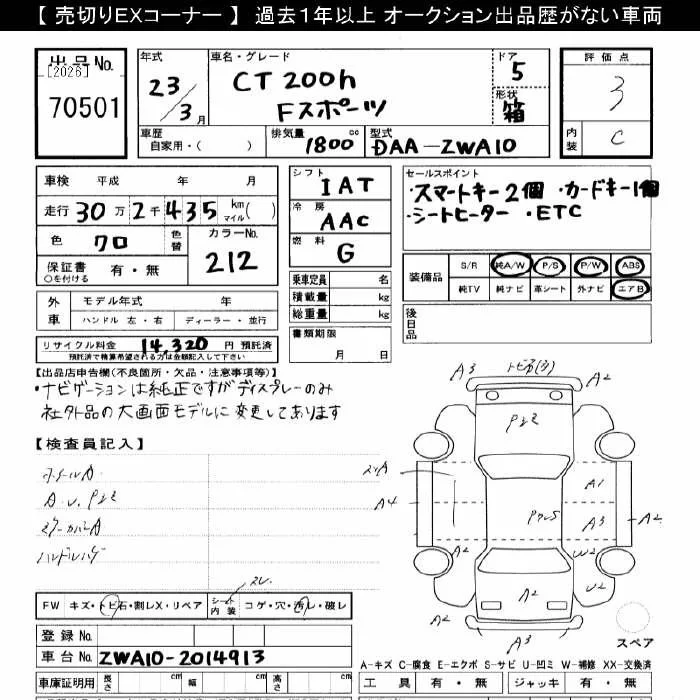 【 売切りEXコーナー 】 過去1年以上 オークション出品歴がない車両
出品No.
[2026]
70501
年式
23/3月
車名・グレード
CT200h
Fスポーツ
ドア
5
形状
箱
評価点
3
内装
C
車歴
自家用・( )
排気量
1800cc
型式
DAA-ZWA10
車検 平成 年 月
走行 30万2千435 km マイル( )
色 クロ
色替
カラーNo.
212
保証書 有・無
○を付ける
シフト
IAT
冷房
AAC
燃料
G
セールスポイント
・スマートキー2個 ・カードキー1個
・シートヒーター ・ETC
装備品
S/R 純A/W P/S P/W ABS
純TV 純ナビ 革シート 外ナビ エアB
乗車定員 名
積載量 kg
総重量 kg
外車
モデル年式 年
ハンドル 左・右 ディーラー・並行
書類期限
月 日
後日品
リサイクル料金 14,320 円 預託済
預託済で精算希望される方は金額記入して下さい
【出品店申告欄(不良箇所・欠品・注意事項等)】
・ナビゲーションは純正ですがディスプレーのみ
社外品の大画面モデルに変更してあります
【検査員記入】
A3
A2
A4
A1
A3
A2
A2
W2
U2
A2
A2
A3
FW キズ・トビ石・割レX・リペア
シート内装 コゲ・穴・汚レ・破レ
スペア
登録No.
車台No. ZWA10-2014913
A-キズ C-腐食 E-エクボ S-サビ U-凹ミ W-補修 XX-交換済
車庫証明用 長さ 幅 高さ
工具 有・無 ジャッキ 有・無